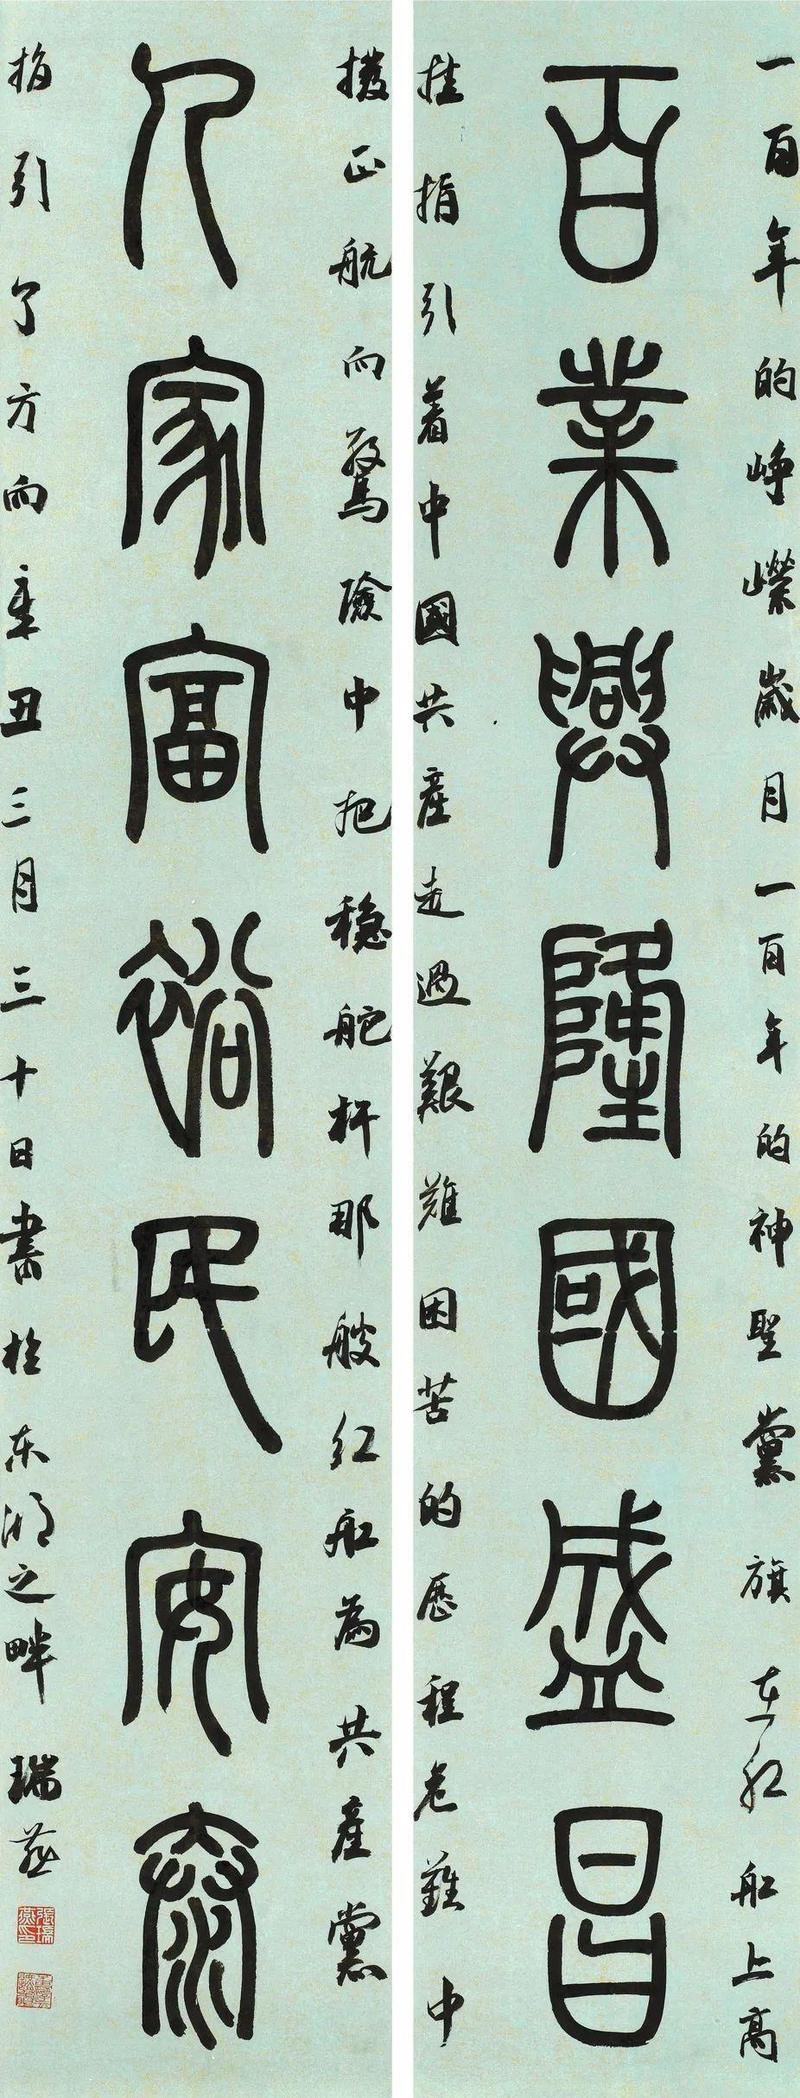 一百年的峥嵘歲月一百年的神聖黨旗在红船上高
百業興隆國盛昌
挂指引着中國共產走過艱難困苦的歷程危難中
撥正航向驚險中把稳舵杆那艘红船為共產黨
人家富裕民安泰
指引了方向辛丑三月三十日書於东湖之畔瑞燕